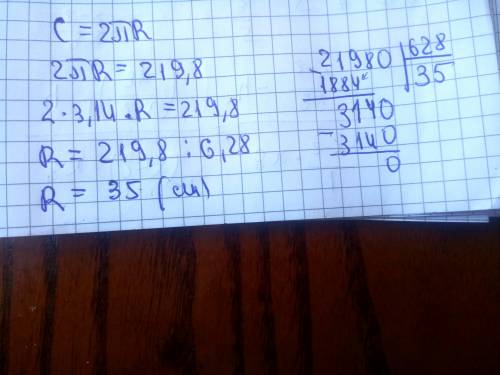 C = 2πR
2πR = 219,8
2·3,14·R = 219,8
R = 219,8 : 6,28
R = 35 (см)
21980 | 628
- 1884 | 35
3140
- 3140
0